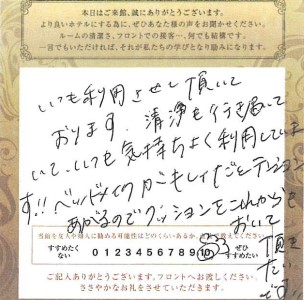 本日はご来館、誠にありがとうございます。
より良いホテルにする為に、ぜひあなた様の声をお聞かせください。
ルームの清潔さ、フロントでの接客…、何でも結構です。
一言でもいただければ、それが私たちの学びとなり励みになります。
いつも利用させて頂いて
おります。清浄も行き届いて
いて、いつも気持ちよく利用しています
す!!ベッドメイクがキレイだとテンション
あがるのでクッションをこれからも
おいて
頂き
たい
です
当館を友人や知人に勧める可能性はどのくらいあるか、
すすめたくない 0 1 2 3 4 5 6 7 8 9 10 ぜひすすめたい
ご記入ありがとうございます。フロントへお渡しください。
ささやかなお礼をさせていただきます。